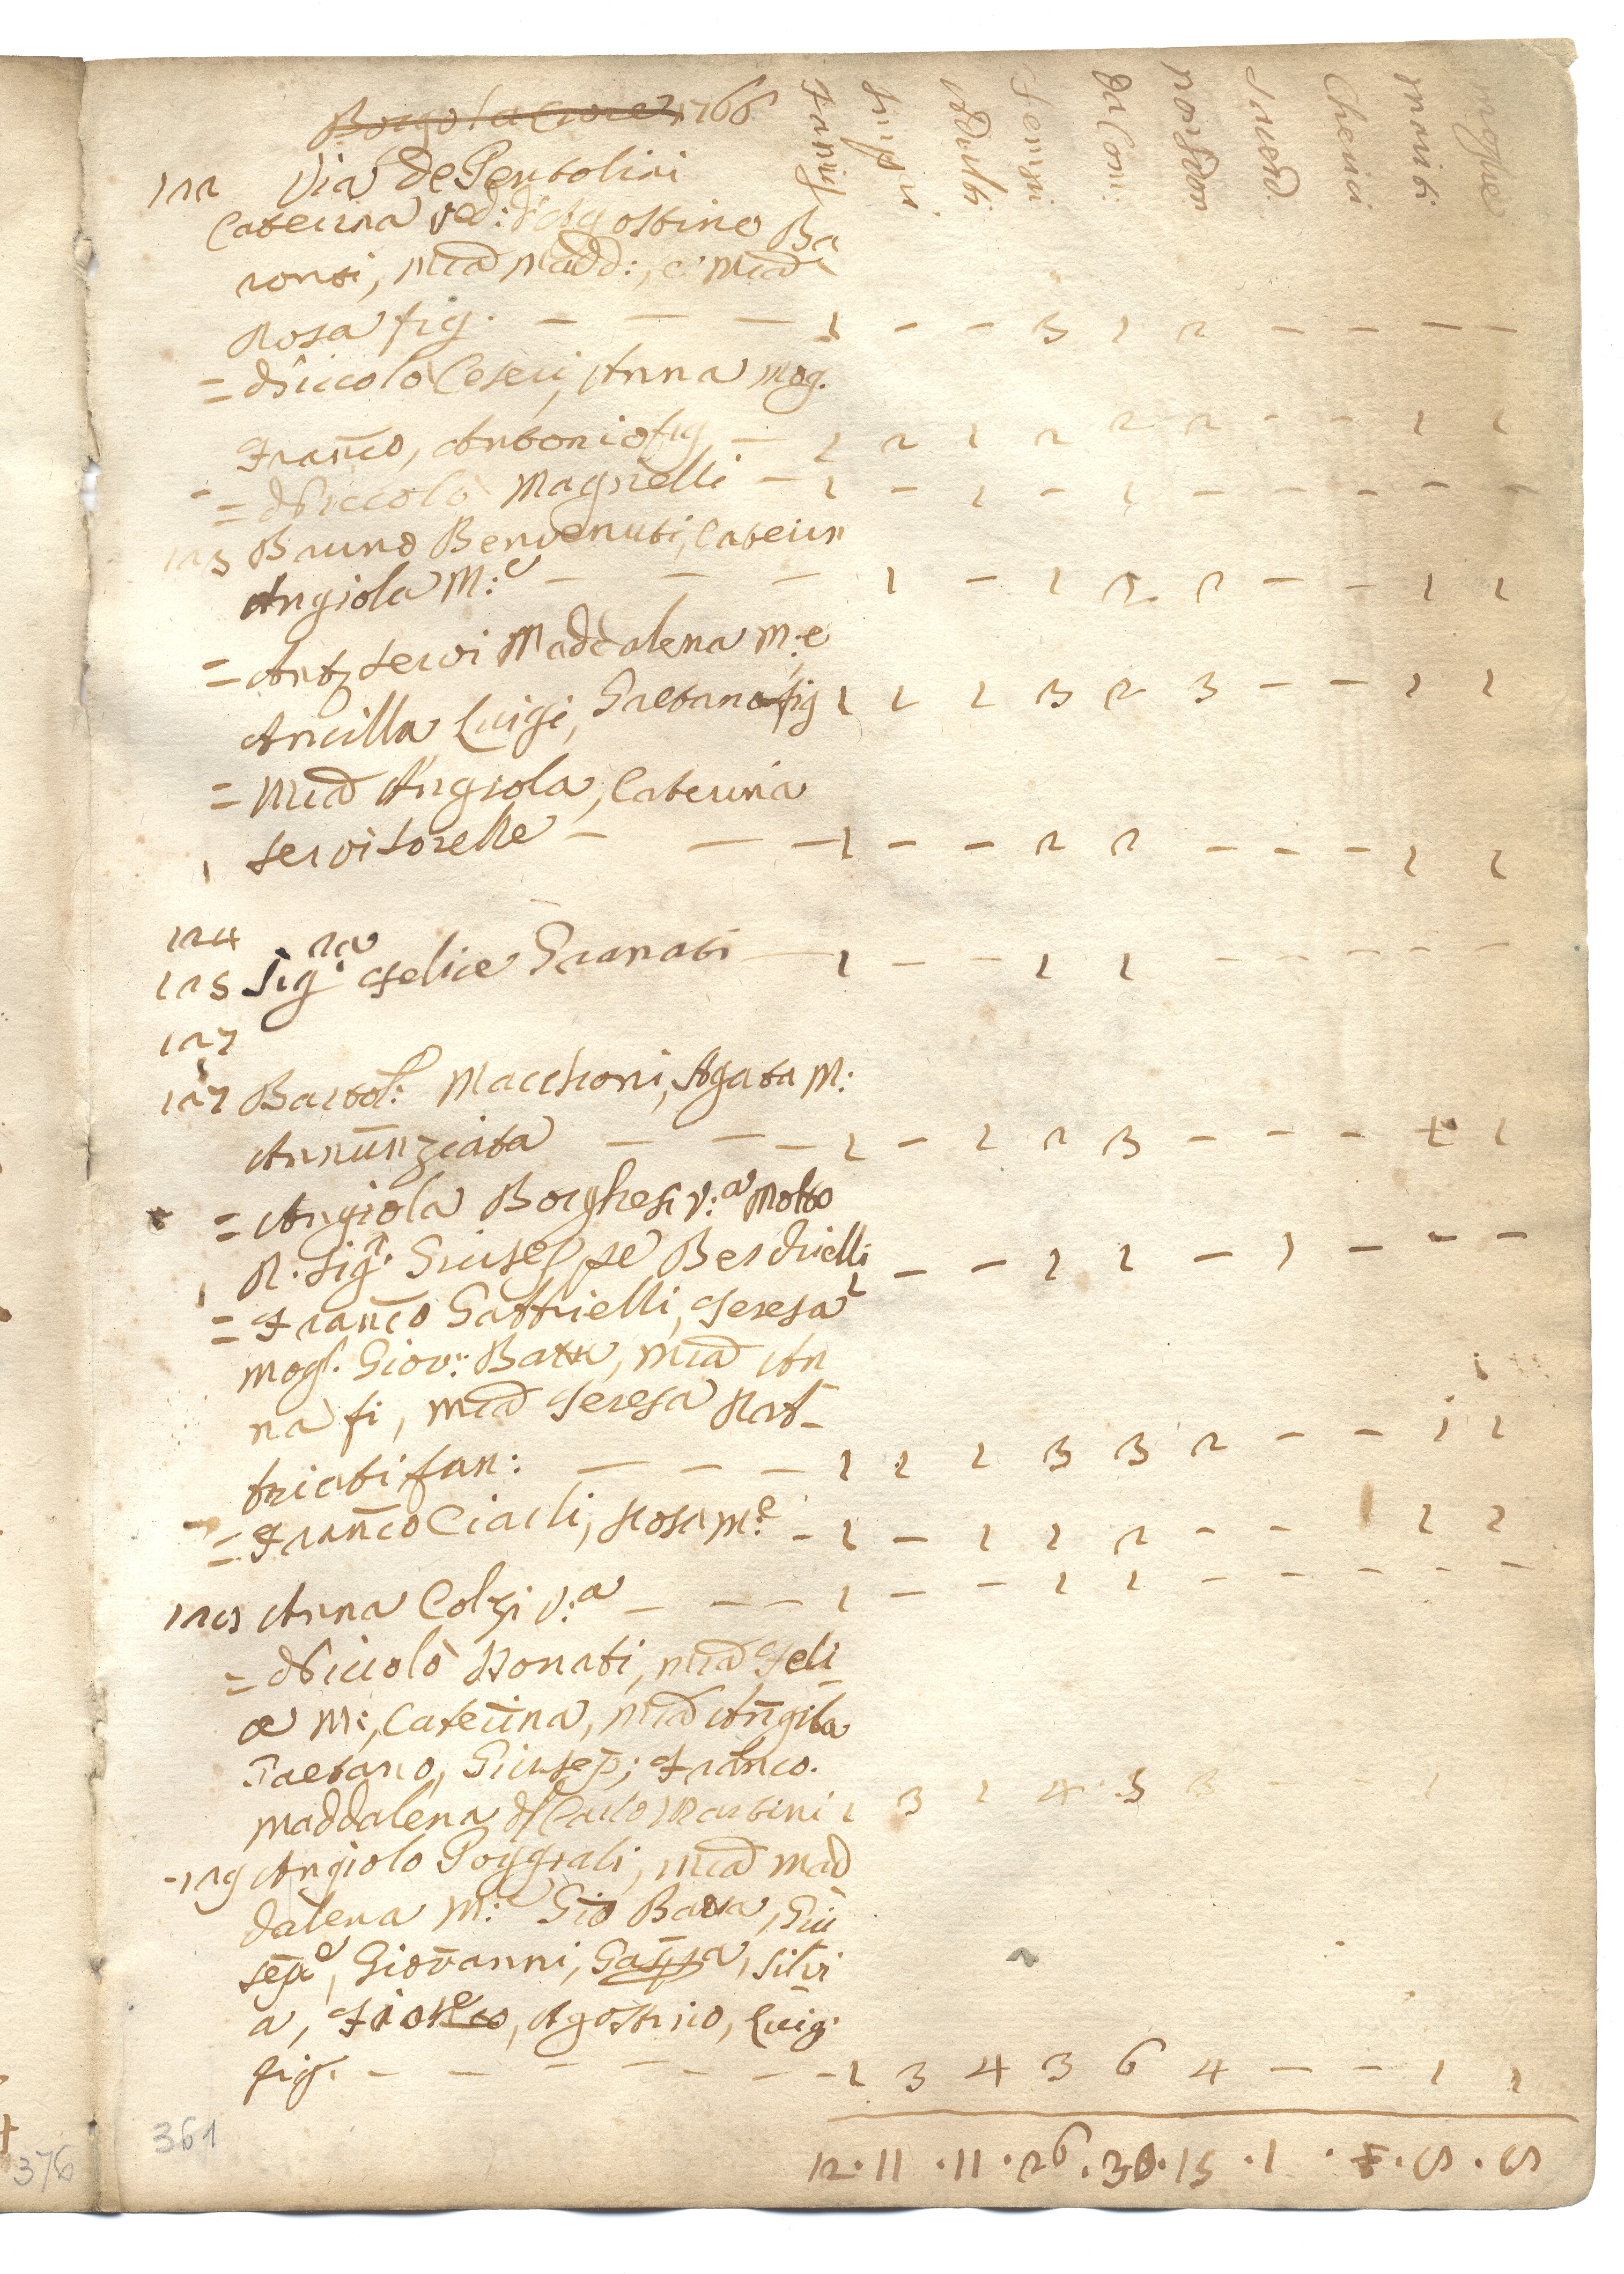 Borgo la Croce 1766 Famigl. Impu. Adulti Femmi Da Com: non Com Sacerd. Cherici mariti moglie
122 Via de Pentolini
Caterina ved: d'Agostino Ba
ronti, Mīa Madd:, e Mīa
Rosa fig. — — — 1 - - 3 1 2 — — — —
= Niccolò Ceseri, Anna mog.
Franc̄o, Antonio fig — 1 2 1 2 2 2 - - 1 1
= Niccolò Magnelli — 1 - 1 - 1 - - - - -
123 Bruno Benvenuti, Caterin
Angiola M:e — — — 1 — 1 2 2 — — 1 1
= Anto Servi Maddalena M:e
Ancilla Luigi, Gaetano fig 1 1 1 3 2 3 — — 1 1
= Mīa Angiola, Caterina
Servi Sorelle — — — 1 - - 2 2 - - - 1 1
124
125 Sig:ra Felice Granati — 1 — — 1 1 - - - - -
127
127 Bartol: Macchioni, Agata M:
Annunziata — — — 1 - 1 2 3 — — — 1 1
= Angiola Borghesi v:a Molto
R. Sigr. Giuseppe Berdielli 1 — — 1 1 — 1 — - —
= Franc̄o Gattrielli, Teresa
mogl. Giov: Batta, mīa An
na fi, mīa Teresa Nat-
triati fan: — — — 1 1 1 3 3 2 — — 1 1
= Franc̄o Ciarli, Rosa M:e - 1 - 1 1 2 - - 1 1
128 Anna Colzi v:a — — — 1 — — 1 1 - - - - -
= Niccolò Donati, mīa Feli
ce M:, Caterina, mīa Angila
Gaetano, Giusep; Franco.
Maddalena di Carlo Martini 1 3 1 4 3 3 — — 1
129 Angiolo Poggiali, mīa Mad
dalena M:e Gio Batta, Giu
sepe, Giovanni, Gaspa, Silvi
a, Agostino, Luig.
fig. — — — — — — — 1 3 4 3 6 4 — — 1 1
12 . 11 . 11 . 26 . 30 . 15 . 1 . . 8 . 8
361
376